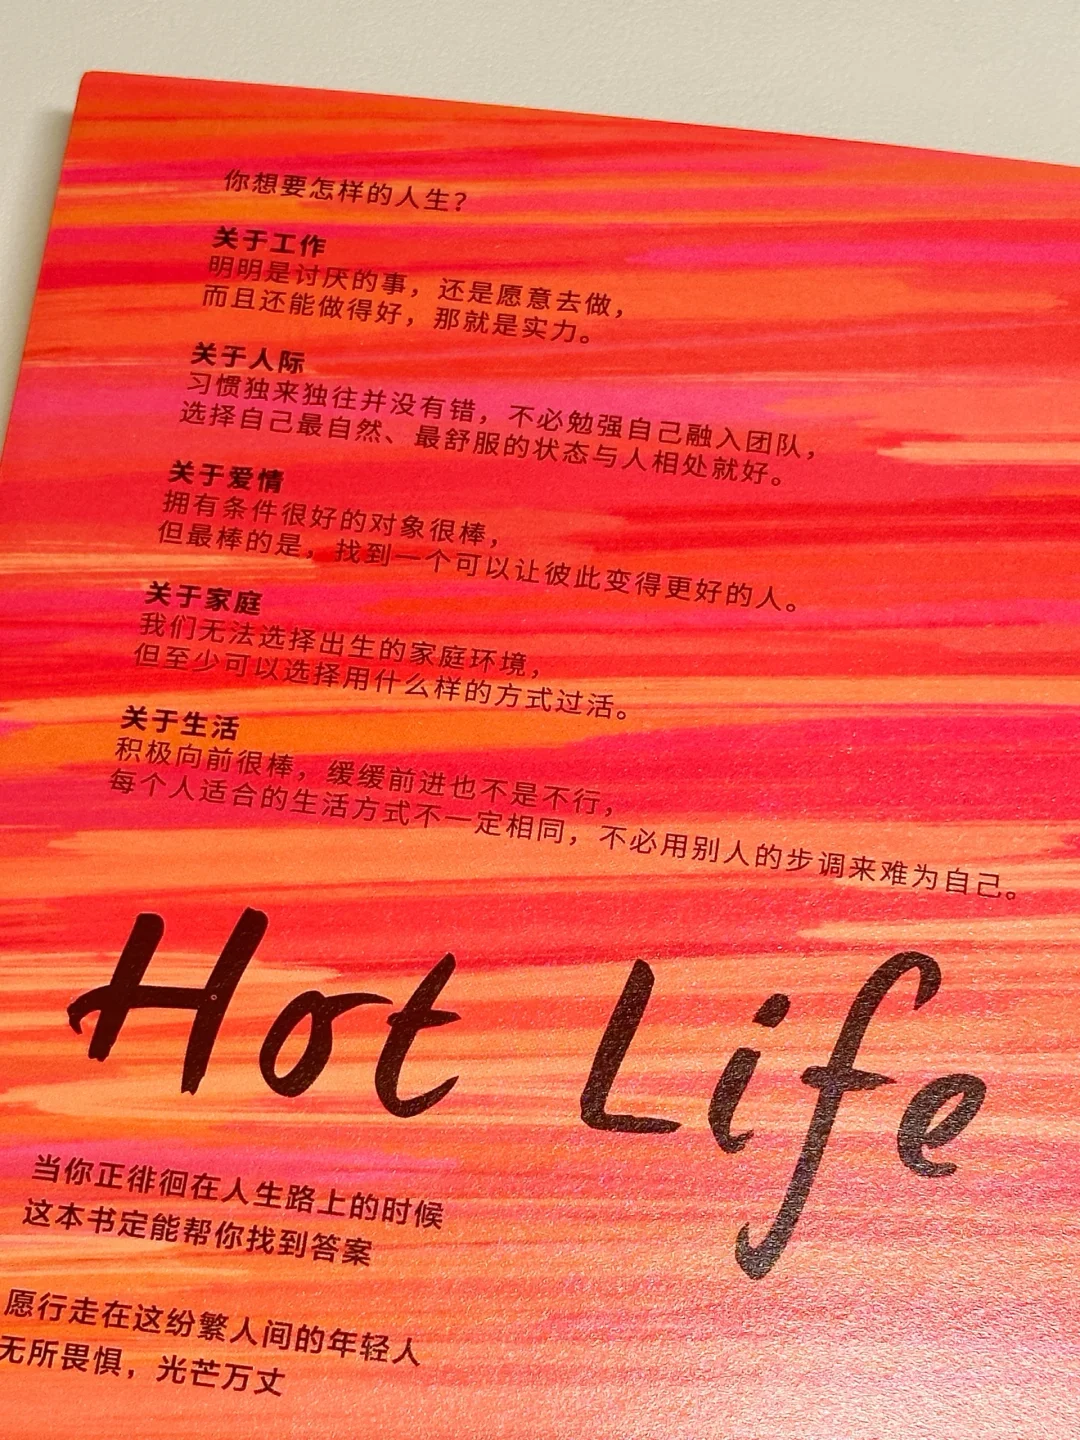 你想要怎样的人生？
关于工作
明明是讨厌的事，还是愿意去做，
而且还能做得好，那就是实力。
关于人际
习惯独来独往并没有错，不必勉强自己融入团队，
选择自己最自然、最舒服的状态与人相处就好。
关于爱情
拥有条件很好的对象很棒，
但最棒的是，找到一个可以让彼此变得更好的人。
关于家庭
我们无法选择出生的家庭环境，
但至少可以选择用什么样的方式过活。
关于生活
积极向前很棒，缓缓前进也不是不行，
每个人适合的生活方式不一定相同，不必用别人的步调来难为自己。
Hot Life
当你正徘徊在人生路上的时候
这本书定能帮你找到答案
愿行走在这纷繁人间的年轻人
无所畏惧，光芒万丈